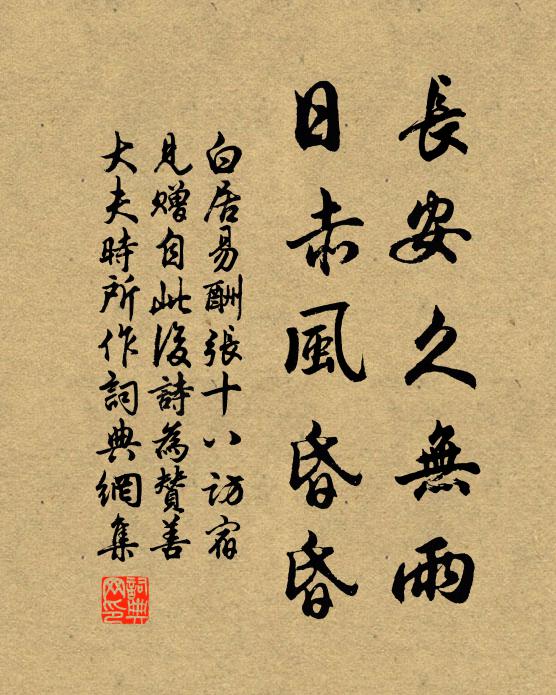 長安久無雨
日赤風昏昏
白居易酬張十八訪宿
見贈自此後詩為贊善
大夫時所作詞典網集
詞典
网印